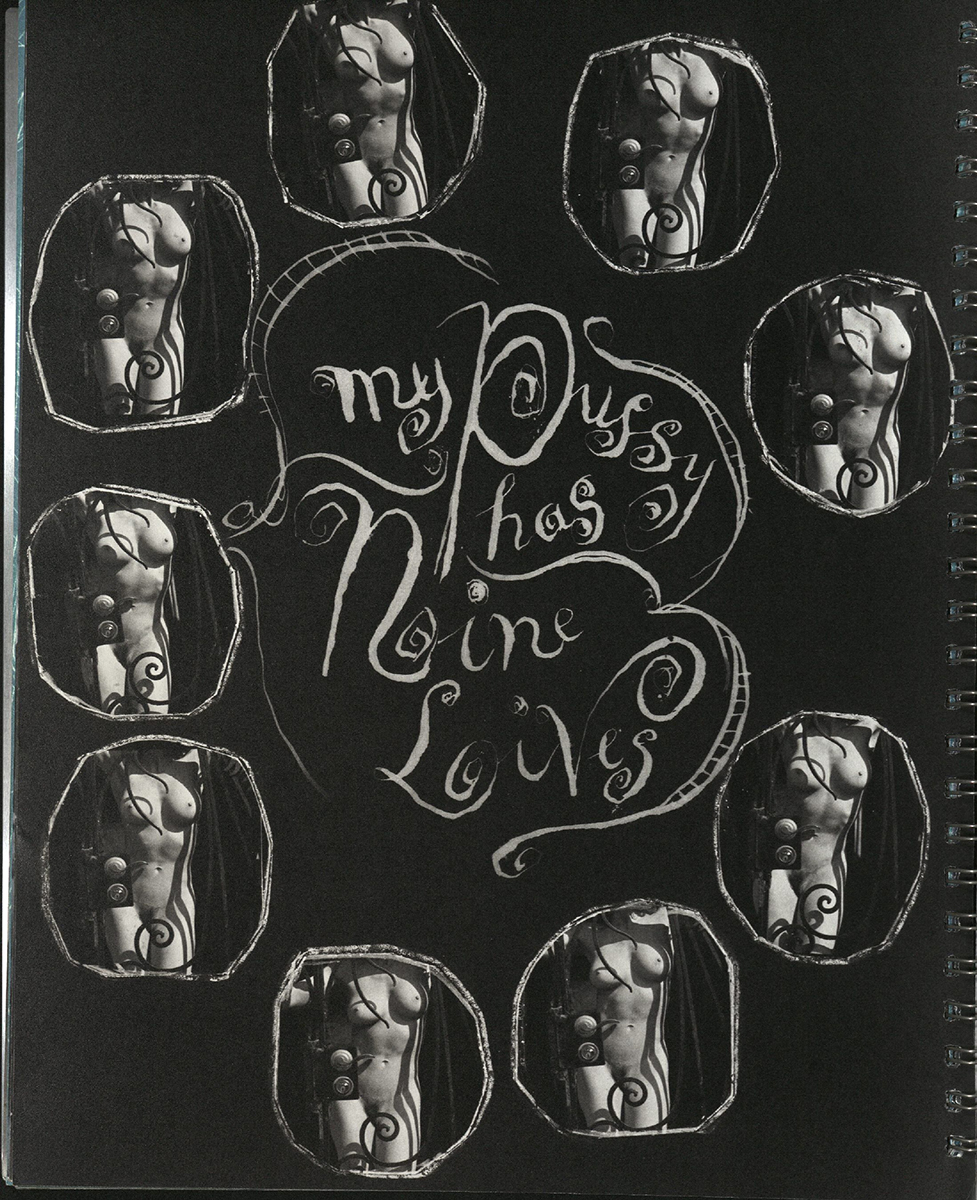 my Pussy
has
Nine
Lives